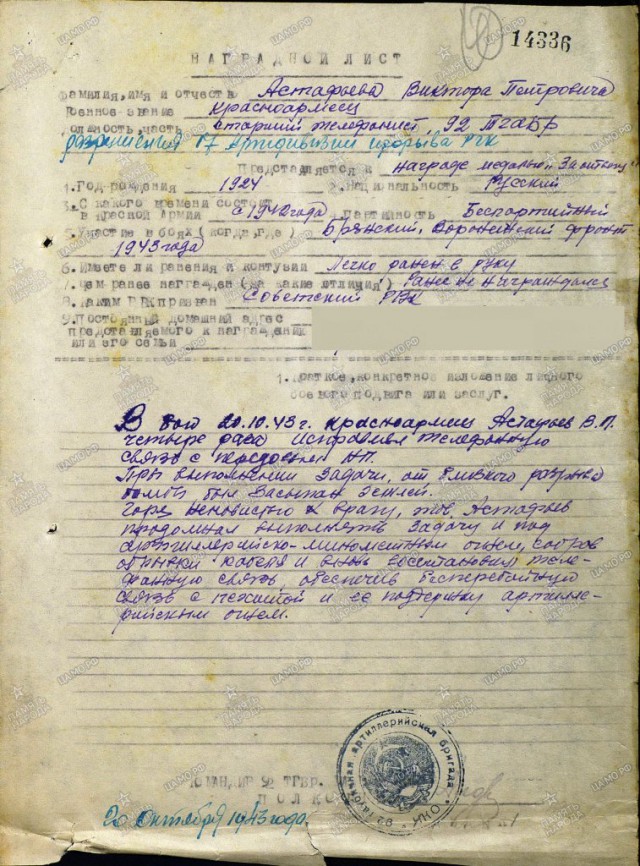 14336
НАГРАДНОЙ ЛИСТ
Фамилия, имя и отчество Астафьева Виктора Петровича
Военное звание красноармеец
Должность, часть старший телефонист, 92 ТГАБР
17 Артдивизии прорыва РГК
Представляется к награде медалью "За отвагу"
1. Год рождения 1924 2. Национальность Русский
3. С какого времени состоит
в Красной Армии с 1942 года Партийность Беспартийный
5. Участие в боях (когда, где) Брянский, Воронежский фронт
1943 года
6. Имеет ли ранения и контузии Легко ранен в руку
7. Чем ранее награжден (за какие отличия) Ранее не награждался
8. Каким РВК призван Советский РВК
9. Постоянный домашний адрес
представляемого к награждению
или его семьи
1. Краткое, конкретное изложение личного
боевого подвига или заслуг.
В бою 20.10.43 г. красноармеец Астафьев В.П.
четыре раза исправлял телефонную
связь с передовым НП.
При выполнении задачи, от близкого разрыва
бомбы был засыпан землей.
Горя ненавистью к врагу, тов. Астафьев
продолжал выполнять задачу и под
артиллерийско-минометным огнем, собрав
обрывки кабеля и вновь восстановил теле-
фонную связь, обеспечив бесперебойную
связь с пехотой и ее поддержку артилле-
рийским огнем.
КОМАНДИР 92 ТГБР
ПОЛКО
92 гаубичная артиллерийская бригада
20 октября 1943 года.
ЦАМО.РФ